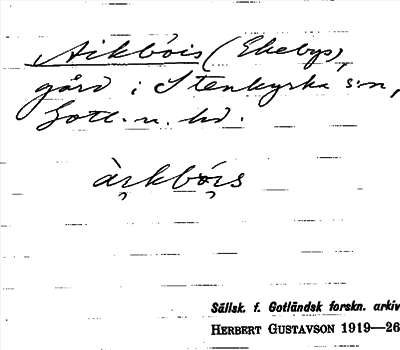 Aikbois (Ekebys),
gård i Stenkyrka s:n,
Gotl. n. hd.
àrkbórs
Sällsk. f. Gotländsk forskn. arkiv
HERBERT GUSTAVSON 1919—26